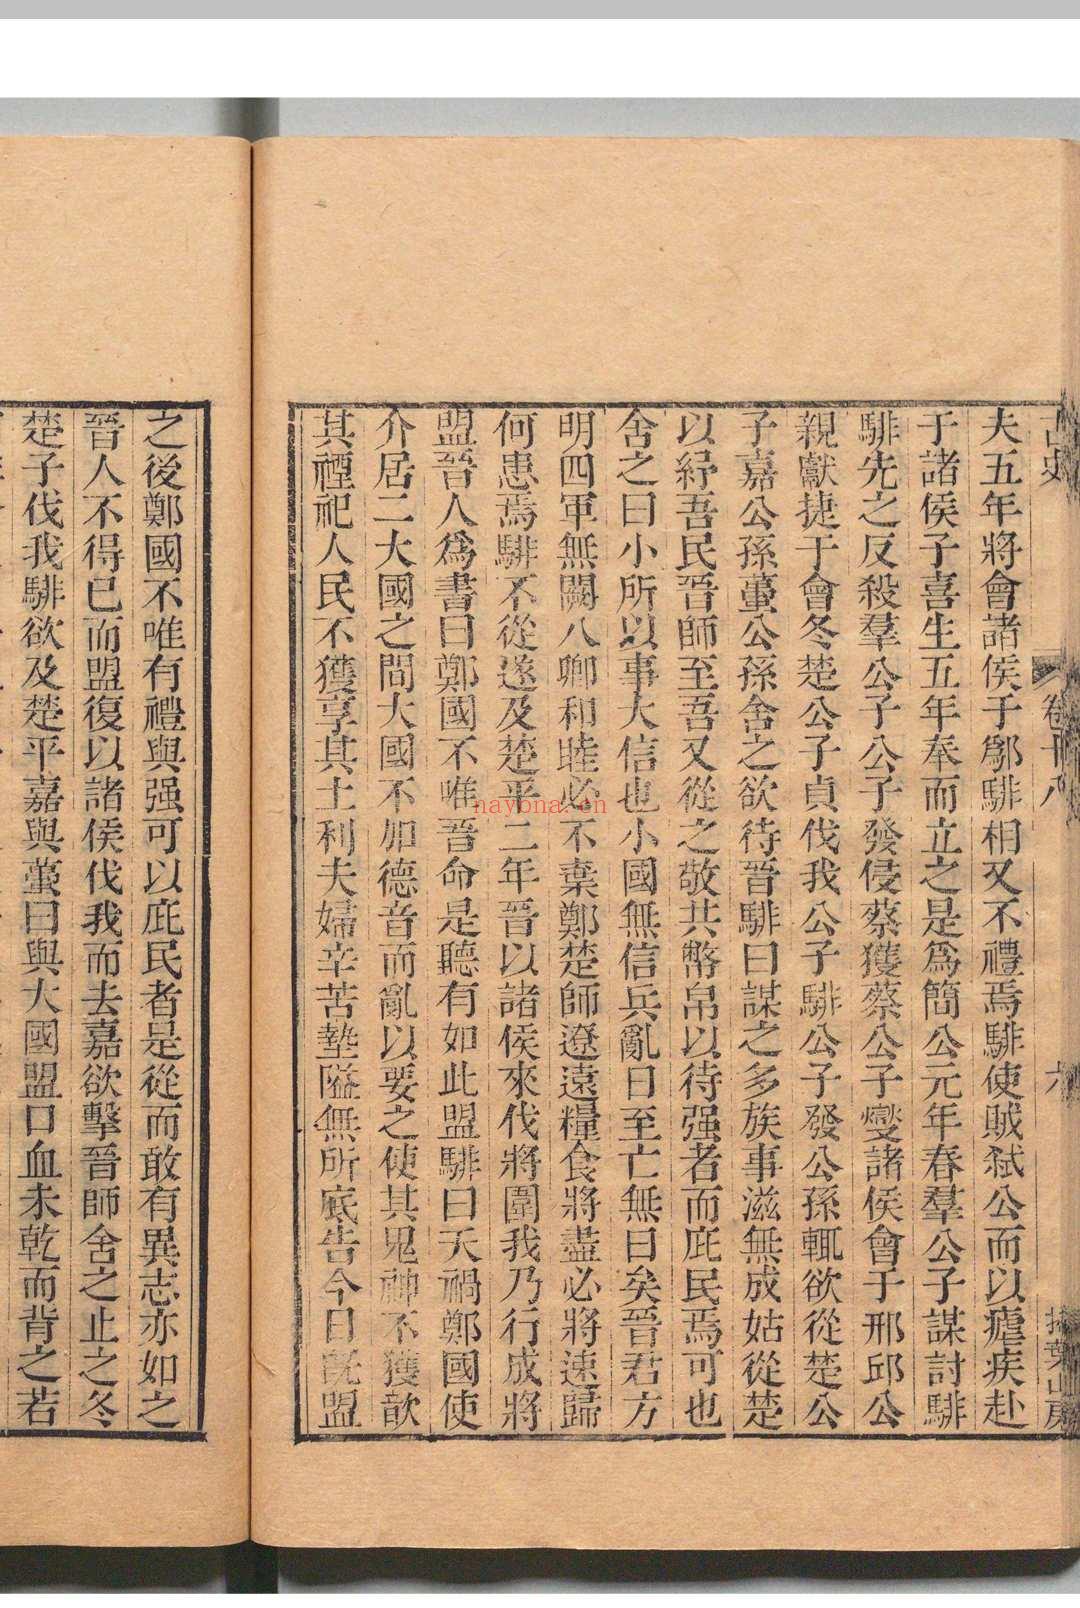 古史 卷廿八 六 掃葉山房
夫五年將會諸侯于鄔騑相又不禮焉騑使賊弒公而以瘧疾赴
于諸侯子喜生五年奉而立之是爲簡公元年春羣公子謀討騑
騑先之反殺羣公子公子發侵蔡獲蔡公子燮諸侯會于邢邱公
親獻捷于會冬楚公子貞伐我公子騑公子發公孫輒欲從楚公
子嘉公孫蠆公孫舍之欲待晉騑曰謀之多族事滋無成姑從楚
以紓吾民晉師至吾又從之敬共幣帛以待强者而庇民焉可也
舍之曰小所以事大信也小國無信兵亂日至亡無日矣晉君方
明四軍無闕八卿和睦必不棄鄭楚師遼遠糧食將盡必將速歸
何患焉騑不從遂及楚平二年晉以諸侯來伐將圍我乃行成將
盟晉人爲書曰鄭國不唯晉命是聽有如此盟騑曰天禍鄭國使
介居二大國之間大國不加德音而亂以要之使其鬼神不獲歆
其禋祀人民不獲享其土利夫婦辛苦墊隘無所底告今日旣盟
之後鄭國不唯有禮與强可以庇民者是從而敢有異志亦如之
晉人不得已而盟復以諸侯伐我而去嘉欲擊晉師舍之止之冬
楚子伐我騑欲及楚平嘉與蠆曰與大國盟口血未乾而背之若
nayona.cn